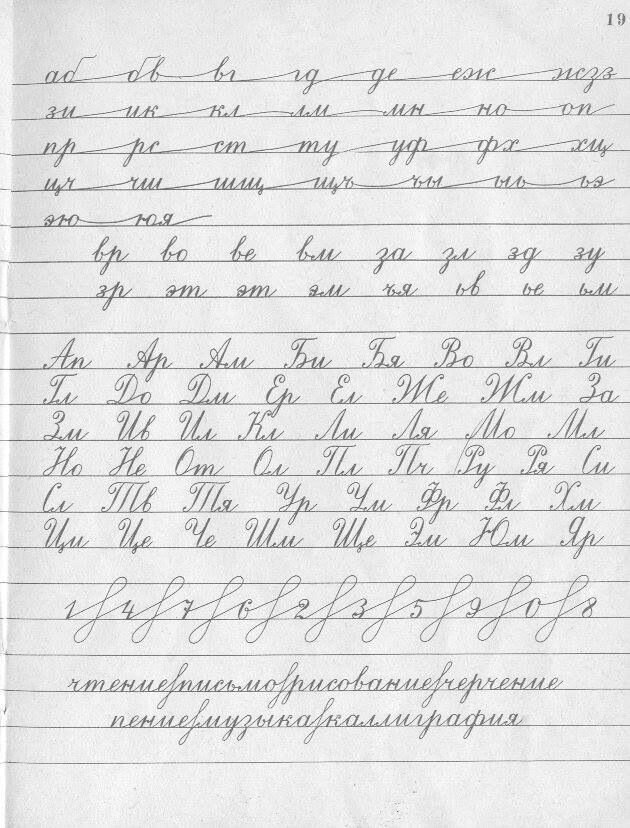 19
аб бв вг гд де еж жзз
зи ик кл лм мн но оп
пр рс ст ту уф фх хц
цч чш шщ щъ ъы ыь ьэ
эю юя
вр во ве вм за зл зд зу
зр эт эт эм ъя ьв ье ьм
Ап Ар Ам Би Бя Во Вл Ги
Гл До Дм Ер Ел Же Жм За
Зм Ив Ил Кл Ли Ля Мо Мл
Но Не От Ол Пл Пч Ру Ря Си
Сл Тв Тя Ур Ум Фр Фл Хм
Ци Це Че Шм Ще Эм Юм Яр
1 4 7 6 2 3 5 9 0 8
чтение письмо рисование черчение
пение музыка каллиграфия